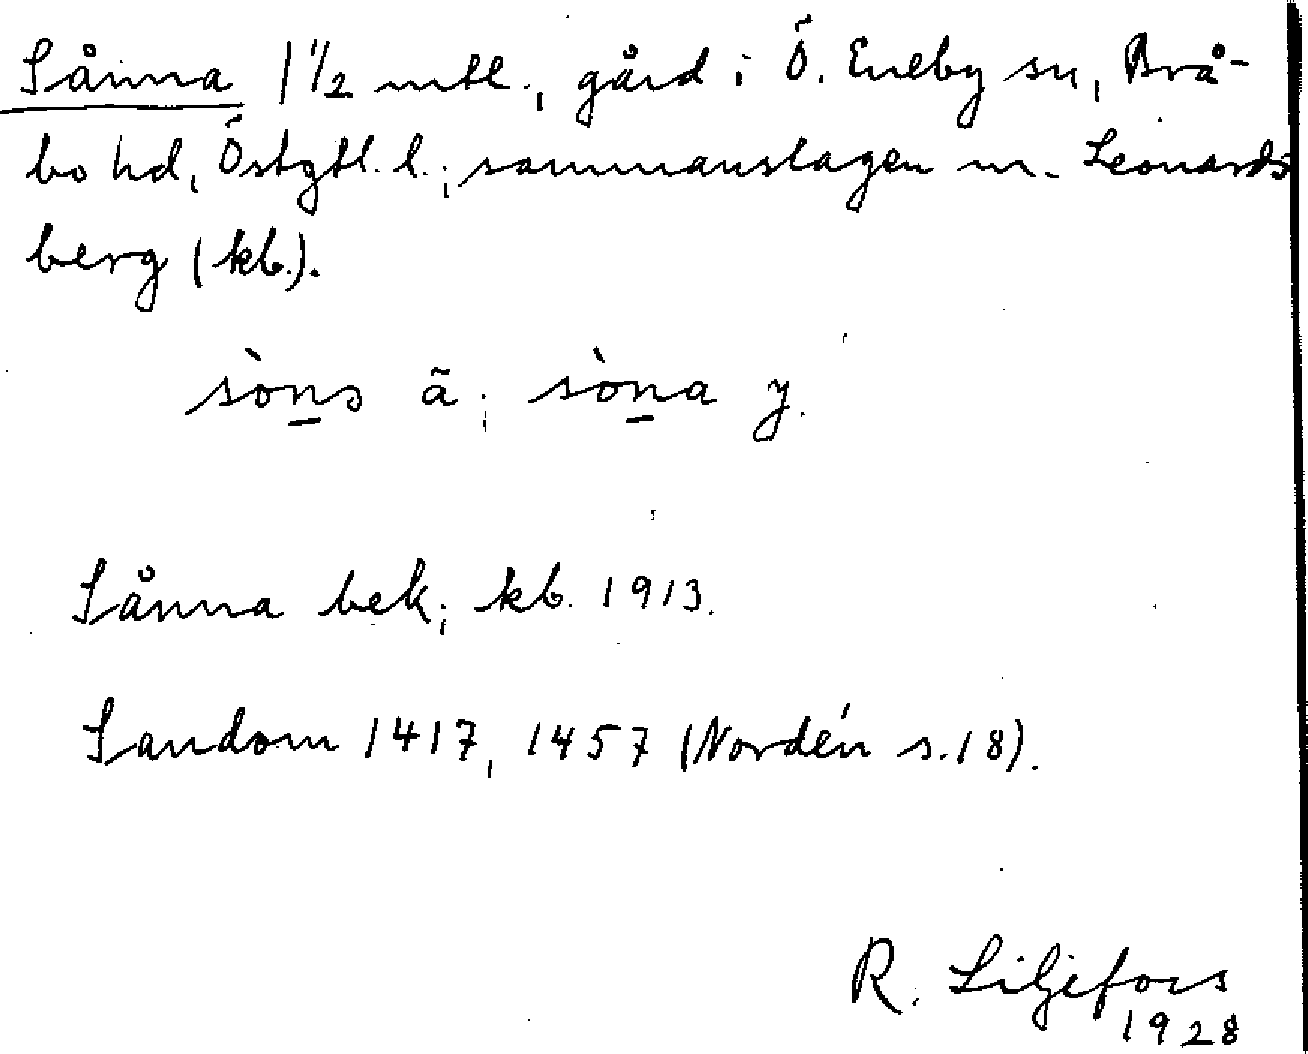 Sånna 1 1/2 mtl., gård i Ö. Eneby sn, Brå-
bo hd, Östgtl. l.; sammanslagen m. Leonards
berg (kb.).
sòṉɔ ä; sòṉa y.
Sånna bek; kb. 1913.
Sandom 1417, 1457 (Nordén s. 18).
R. Liljefors
1928